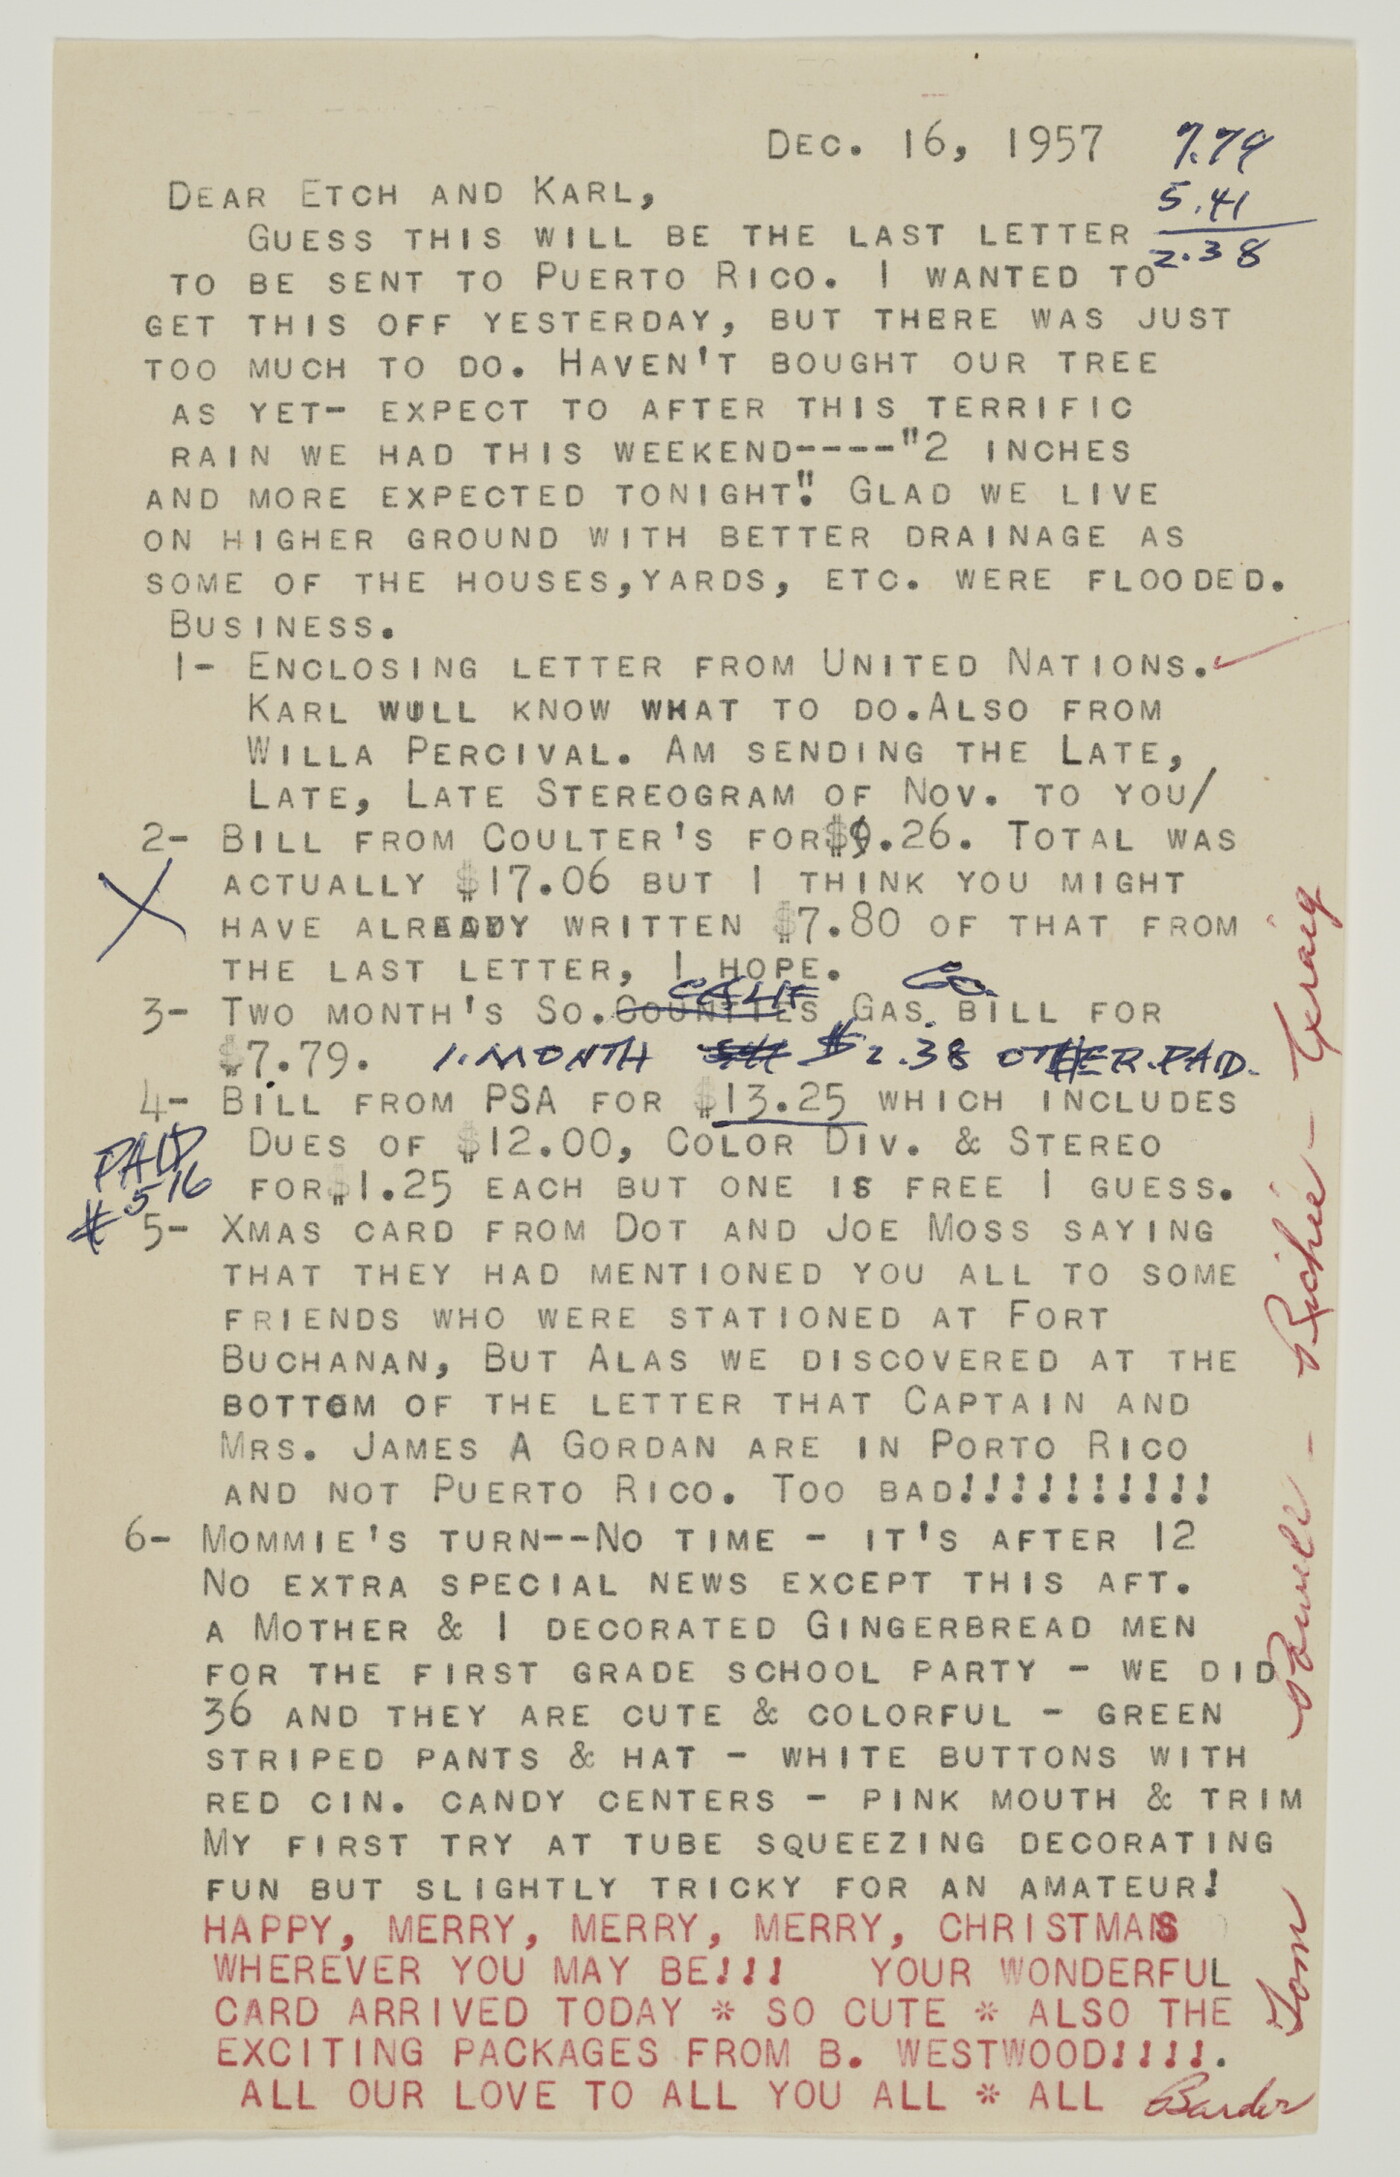 DEC. 16, 1957
7.79
5.41
2.38
DEAR ETCH AND KARL,
GUESS THIS WILL BE THE LAST LETTER
TO BE SENT TO PUERTO RICO. I WANTED TO
GET THIS OFF YESTERDAY, BUT THERE WAS JUST
TOO MUCH TO DO. HAVEN'T BOUGHT OUR TREE
AS YET- EXPECT TO AFTER THIS TERRIFIC
RAIN WE HAD THIS WEEKEND----"2 INCHES
AND MORE EXPECTED TONIGHT". GLAD WE LIVE
ON HIGHER GROUND WITH BETTER DRAINAGE AS
SOME OF THE HOUSES,YARDS, ETC. WERE FLOODED.
BUSINESS.
1- ENCLOSING LETTER FROM UNITED NATIONS.
KARL WULL KNOW WHAT TO DO.ALSO FROM
WILLA PERCIVAL. AM SENDING THE LATE,
LATE, LATE STEREOGRAM OF NOV. TO YOU/
2- BILL FROM COULTER'S FOR$9.26. TOTAL WAS
ACTUALLY $17.06 BUT I THINK YOU MIGHT
X
HAVE ALREADY WRITTEN $7.80 OF THAT FROM
THE LAST LETTER, I HOPE.
CALIF Co.
3- TWO MONTH'S SO.COUNTIES GAS BILL FOR
$7.79. 1.MONTH $2.38 OTHER.PAID.
4- BILL FROM PSA FOR $13.25 WHICH INCLUDES
PAID
DUES OF $12.00, COLOR DIV. & STEREO
# 516
FOR$1.25 EACH BUT ONE IS FREE I GUESS.
5- XMAS CARD FROM DOT AND JOE MOSS SAYING
THAT THEY HAD MENTIONED YOU ALL TO SOME
FRIENDS WHO WERE STATIONED AT FORT
BUCHANAN, BUT ALAS WE DISCOVERED AT THE
BOTTOM OF THE LETTER THAT CAPTAIN AND
MRS. JAMES A GORDAN ARE IN PORTO RICO
AND NOT PUERTO RICO. TOO BAD!!!!!!!!!!
6- MOMMIE'S TURN--NO TIME - IT'S AFTER 12
NO EXTRA SPECIAL NEWS EXCEPT THIS AFT.
A MOTHER & I DECORATED GINGERBREAD MEN
FOR THE FIRST GRADE SCHOOL PARTY - WE DID
36 AND THEY ARE CUTE & COLORFUL - GREEN
STRIPED PANTS & HAT - WHITE BUTTONS WITH
RED CIN. CANDY CENTERS - PINK MOUTH & TRIM
MY FIRST TRY AT TUBE SQUEEZING DECORATING
FUN BUT SLIGHTLY TRICKY FOR AN AMATEUR!
HAPPY, MERRY, MERRY, MERRY, CHRISTMAS
WHEREVER YOU MAY BE!!! YOUR WONDERFUL
CARD ARRIVED TODAY * SO CUTE * ALSO THE
EXCITING PACKAGES FROM B. WESTWOOD!!!!.
ALL OUR LOVE TO ALL YOU ALL * ALL
Tom - Richie - Craig